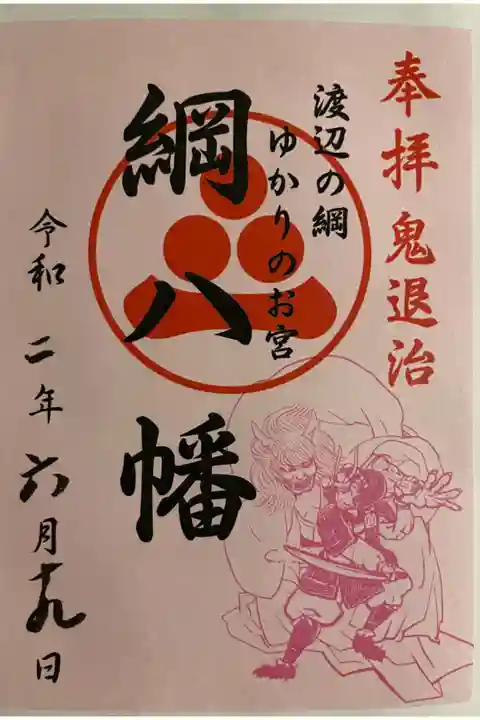 奉拝 鬼退治
渡辺の綱
ゆかりのお宮
綱八幡
令和 二年 六月十九日